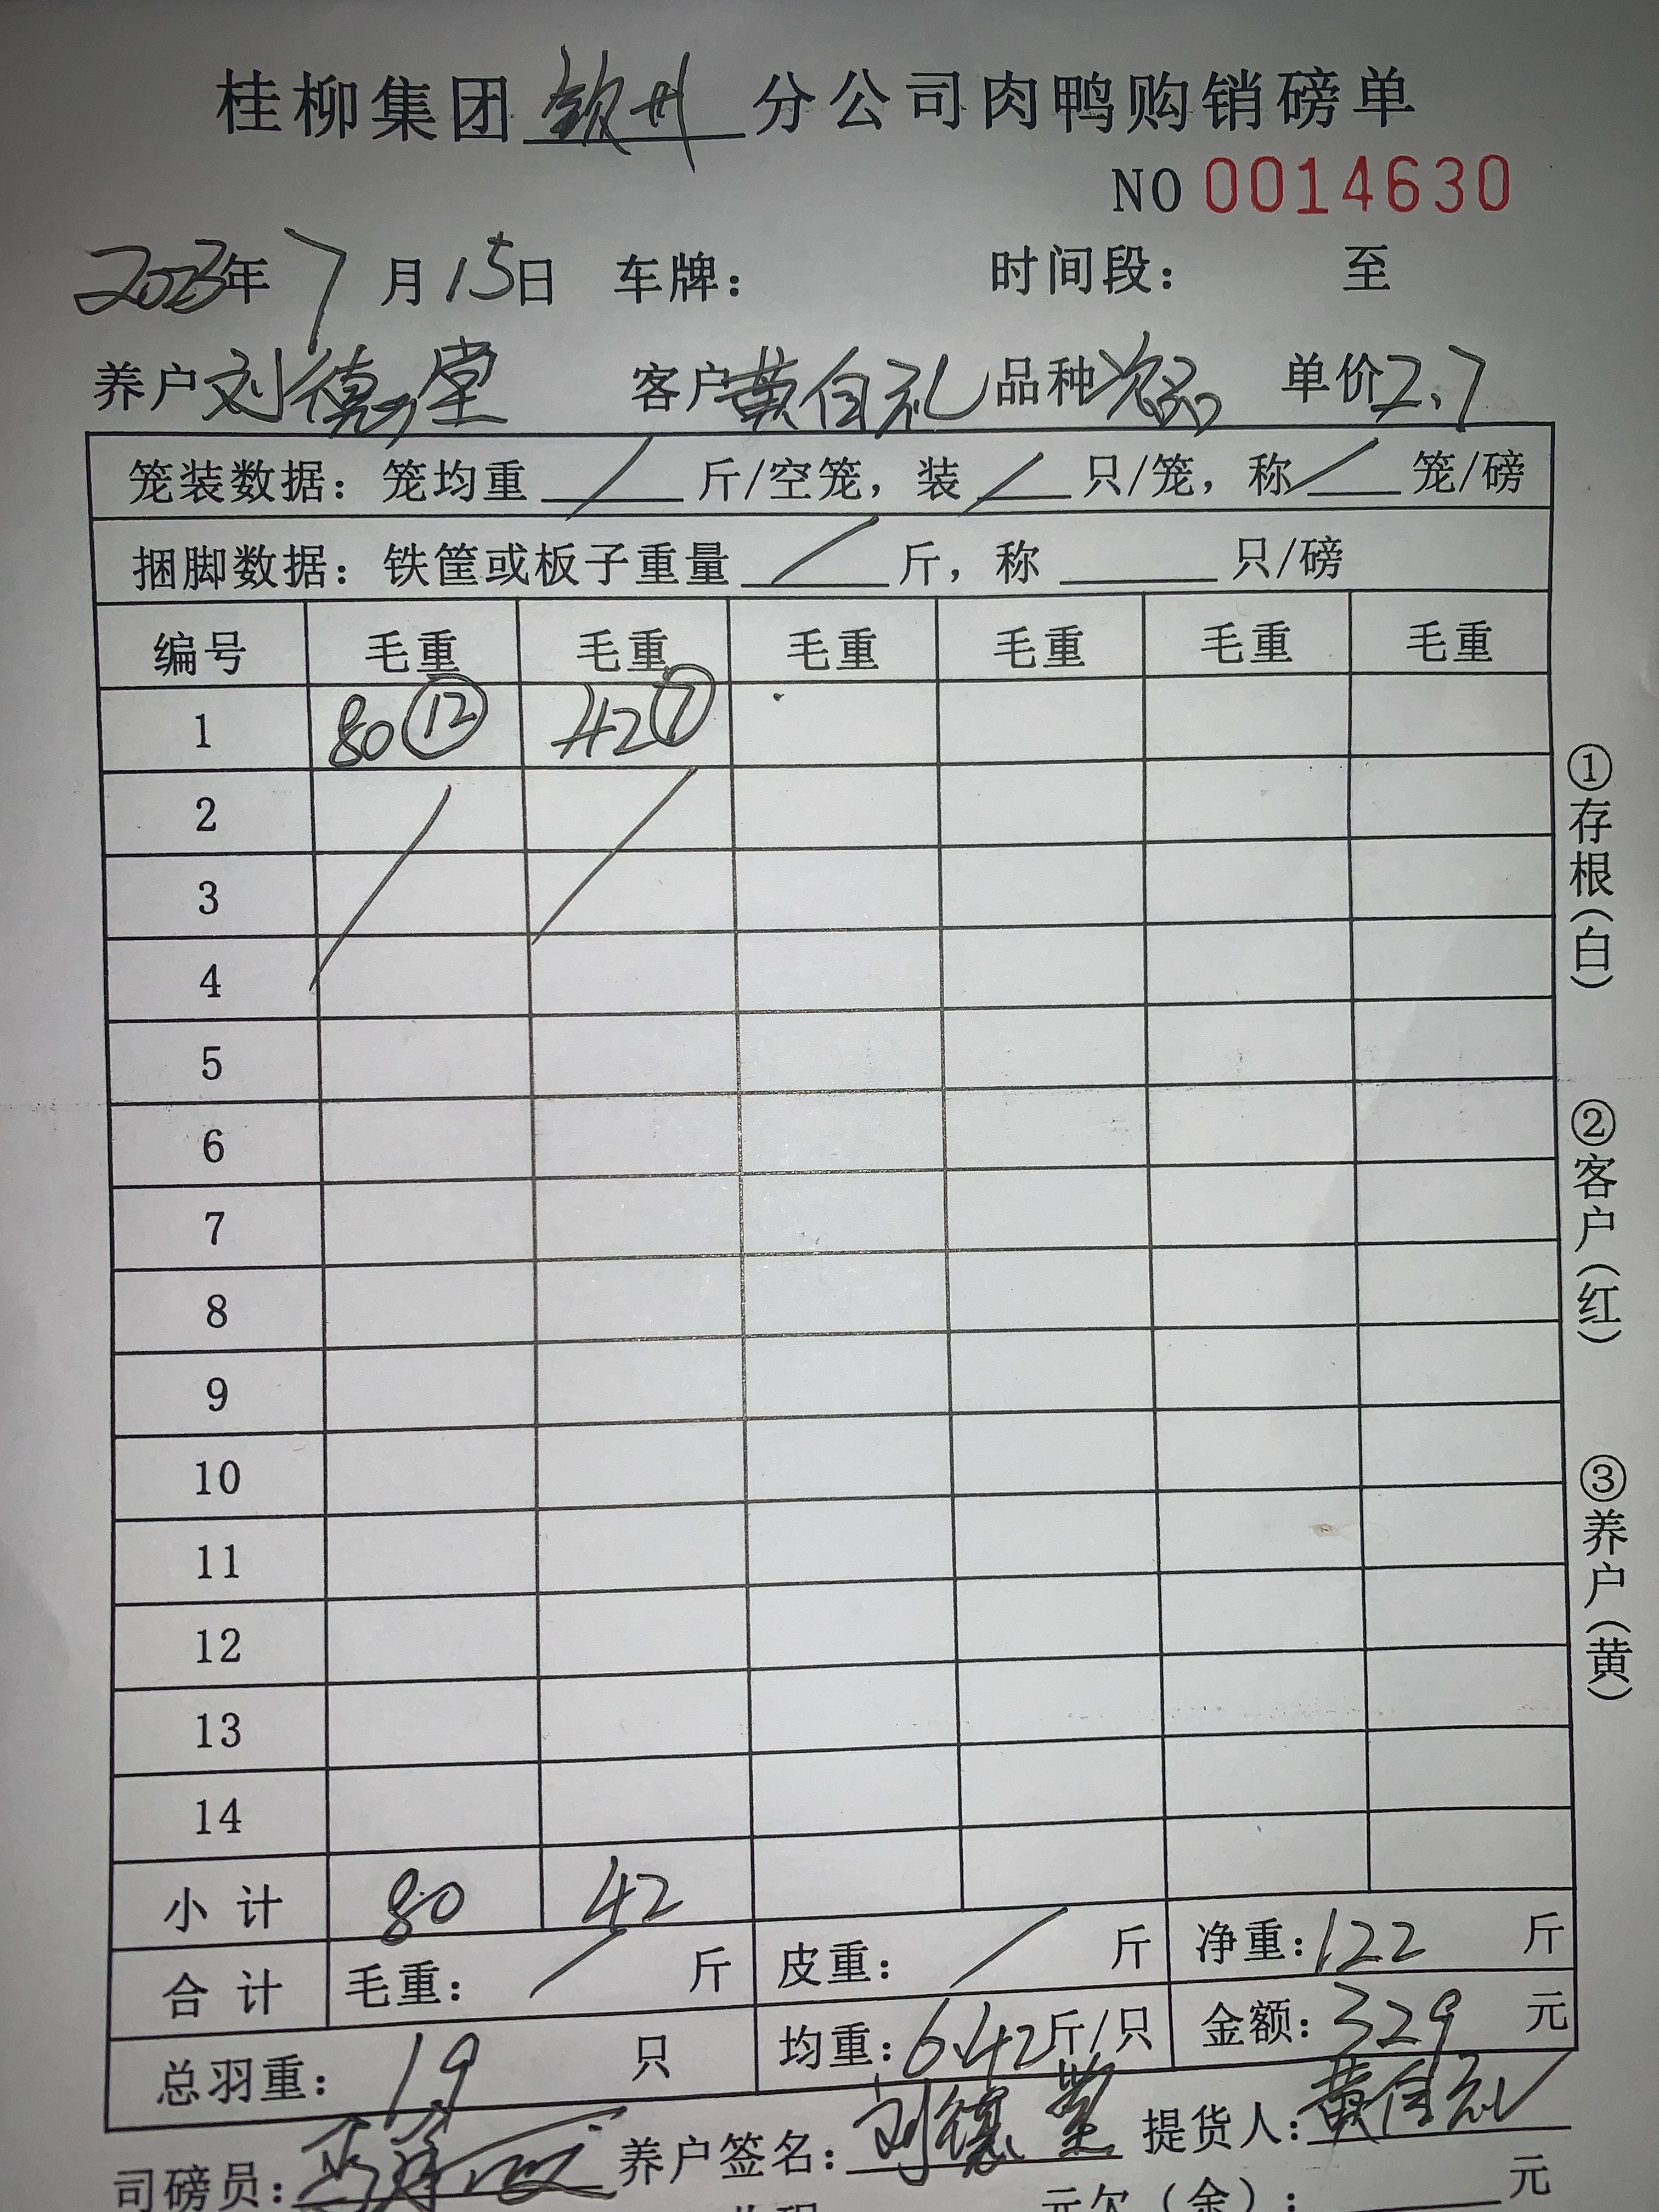 桂柳集团 钦州 分公司肉鸭购销磅单
NO 0014630
2023年 7 月 15日 车牌： 时间段： 至
养户 刘德堂 客户 黄自礼 品种 次品 单价 2.7
笼装数据：笼均重 / 斤/空笼，装 / 只/笼，称 / 笼/磅
捆脚数据：铁筐或板子重量 / 斤，称 只/磅
编号 毛重 毛重 毛重 毛重 毛重 毛重
1 80 ⑫ 42 ⑦
2
3
4
5
6
7
8
9
10
11
12
13
14
小计 80 42
合计 毛重： / 斤 皮重： / 斤 净重：122 斤
总羽重： 19 只 均重：6.42斤/只 金额：329 元
司磅员： 养户签名：刘德堂 提货人：黄自礼
元欠（余）： 元
①存根（白）
②客户（红）
③养户（黄）